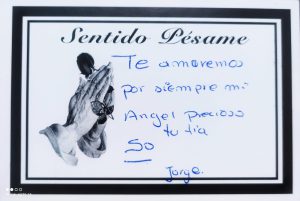 Sentido Pésame
Te amaremos
por siempre mi
Angel precioso
tu tia
So
Jorge.